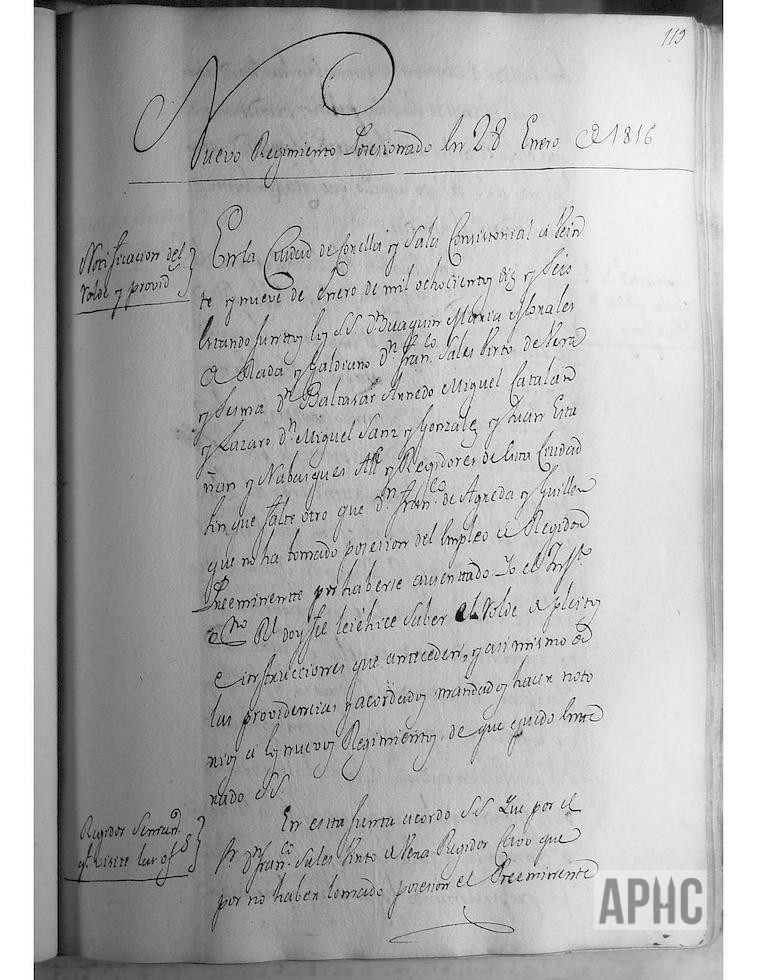 119
Nuevo Regimiento Posesionado en 28 Enero de 1816
Notificacion del
volde y provid.
En la Ciudad de Corella y Sala Consistorial a Vein
te y nueve de Enero de mil ochocientos diez y Seis
Estando juntos los S.S. Dn Juaquin Maria Morales
de Rada y Galdiano Dn Franco. Sales Virto de Vera
y Dn Baltasar Miguel Catalan
y Lazaro Dn Miguel Sanz y Gonzalez y Juan Esta
ñan y Nabasques Alle y Regidores de Esta Ciudad
Sin que falte otro que Dn Franco. de Agreda y Guillen
que no ha tomado posesion del Empleo de Regidor
Preeminente por haberse ausentado. Yo el
Rl doy fe lei é hice Saber el volde de pleitos
e instrucciones que anteceden, y asi mismo
las providencias y acordados mandados hacer noto
rios a los nuevos Regimientos, de que quedo Ente
rado SS.
Regidor
qe. visite las
En esta Junta acordo S.S. Que por el
Sr. Dn Franco. Sales Virto de Vera Regidor Cavo que
por no haber tomado posesion el Preeminente
APHC